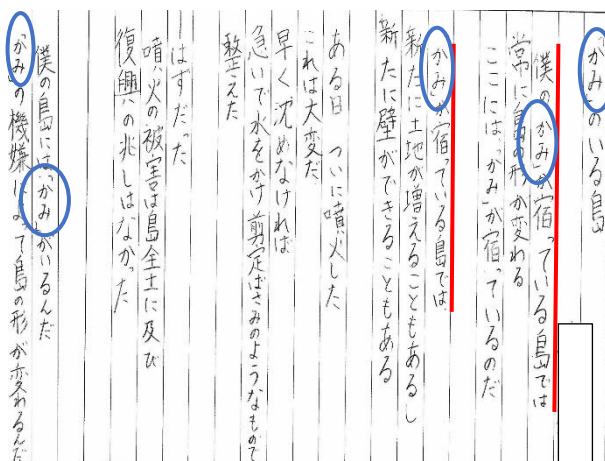 「かみ」のいる島
僕の「かみ」が宿っている島では
常に島の形が変わる
ここには「かみ」が宿っているのだ
「かみ」が宿っている島では
新たに土地が増えることもあるし
新たに壁ができることもある
ある日 ついに噴火した
これは大変だ
早く沈めなければ
急いで水をかけ剪定ばさみのようなもので
整えた
はずだった
噴火の被害は島全土に及び
復興の兆しはなかった
僕の島には「かみ」がいるんだ
「かみ」の機嫌によって島の形が変わるんだ